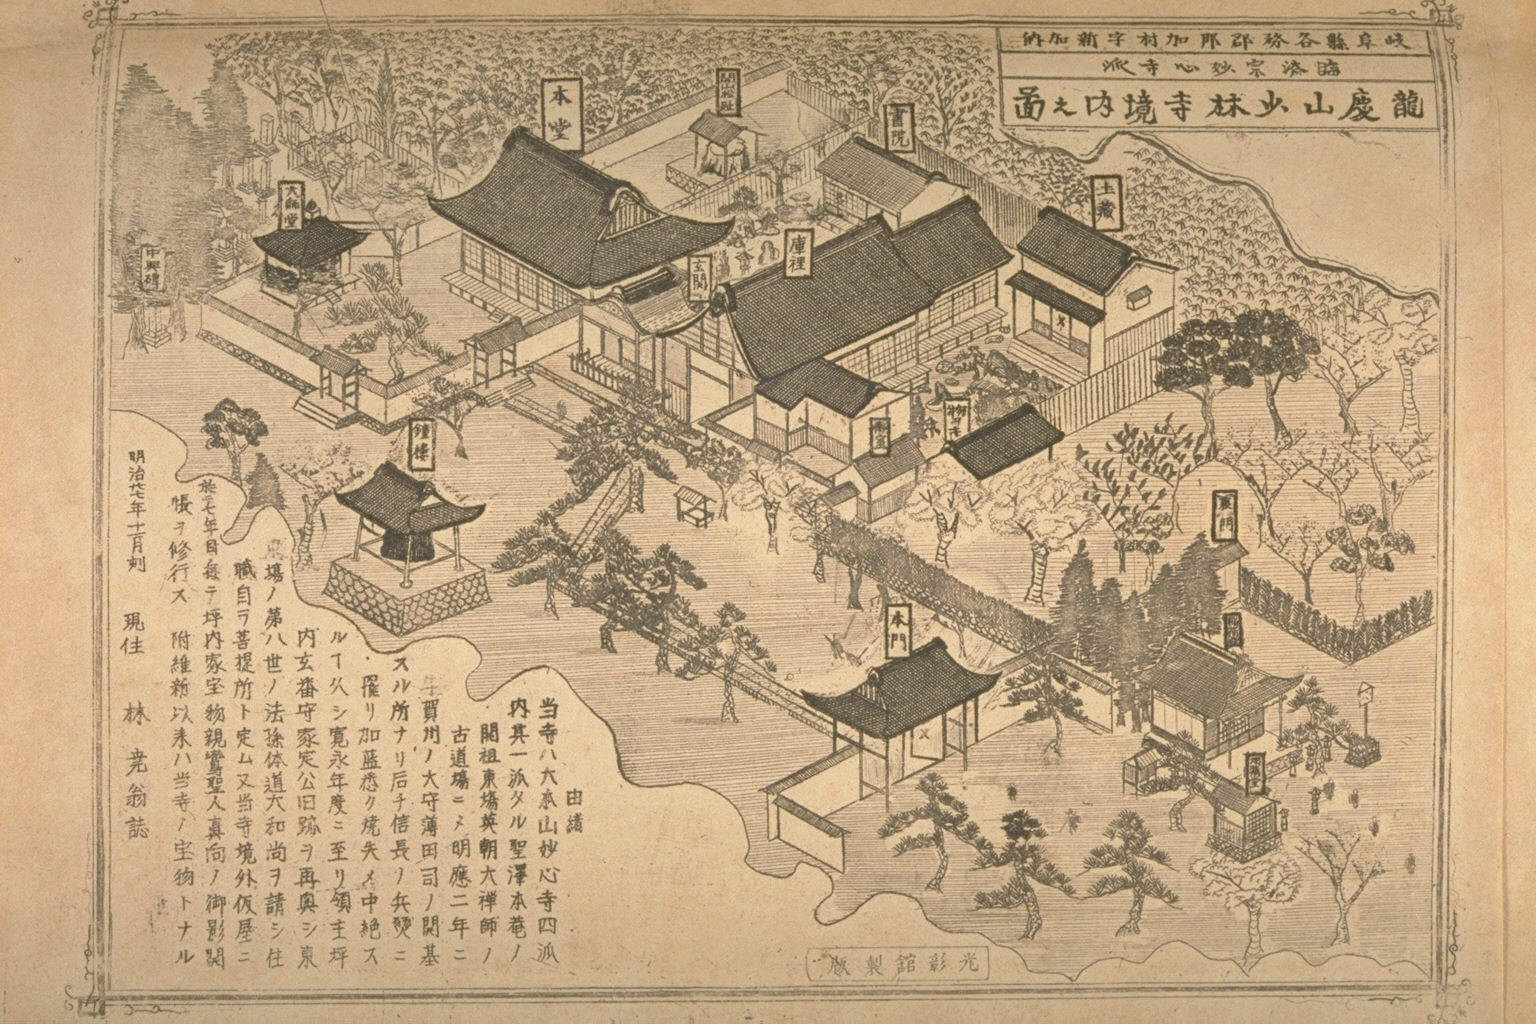 岐阜縣各務郡那加村字新加納
臨濟宗妙心寺派
龍慶山少林寺境内之圖
本堂
開山祖址
書院
土蔵
大師堂
中興碑
玄関
庫裡
鐘樓
物置
裏門
本門
由緒
当寺ハ大本山妙心寺四派
内其一派タル聖澤本菴ノ
開祖東塲英朝大禅師ノ
古道場ニメ明應二年ニ
賀州ノ大守薄田司ノ開基
スル所ナリ后チ信長ノ兵燹ニ
罹リ加藍悉ク焼失メ中絶ス
ルヿ久シ寛永年度ニ至リ領主坪
内玄蕃守家定公旧跡ヲ再興シ東
塲ノ第八世ノ法孫体道大和尚ヲ請シ住
職自ラ菩提所ト定ム又当寺境外仮屋ニ
於七年目毎テ坪内家宝物親鸞聖人真向ノ御影開
帳ヲ修行ス 附維新以来ハ当寺ノ宝物トナル
明治廿七年十一月刻 現住 林 尭翁誌
光彰館製版